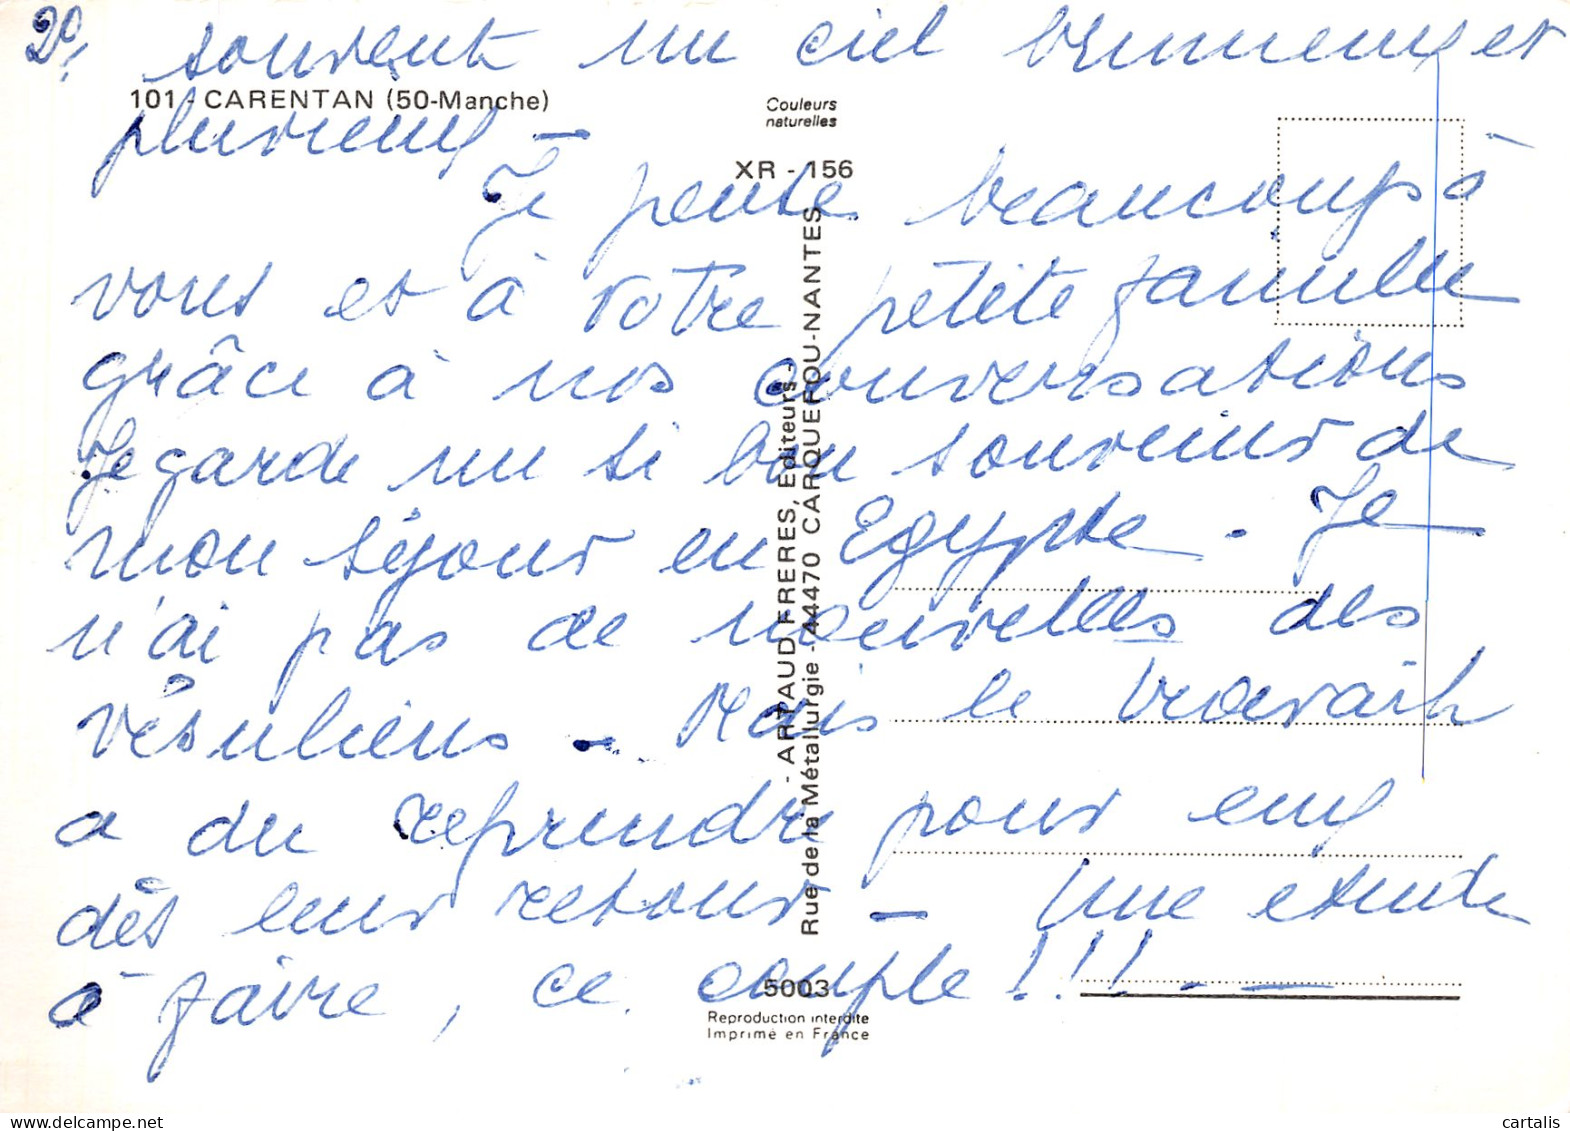 2°/ souvent un ciel brumeux et
101 - CARENTAN (50-Manche)
Couleurs
naturelles
pluvieux -
XR - 156
Je pense beaucoup à
vous et à votre petite famille
grâce à nos conversations
Je garde un si bon souvenir de
mon séjour en Egypte - Je
n'ai pas de nouvelles des
vésuliens - Mais le travail
a du reprendre pour eux
dès leur retour - Une etude
à faire, ce couple !!!
- ARTAUD FRERES, Editeurs -
Rue de la Métallurgie - 44470 CARQUEFOU-NANTES
5003
Reproduction interdite
Imprimé en France
cartalis